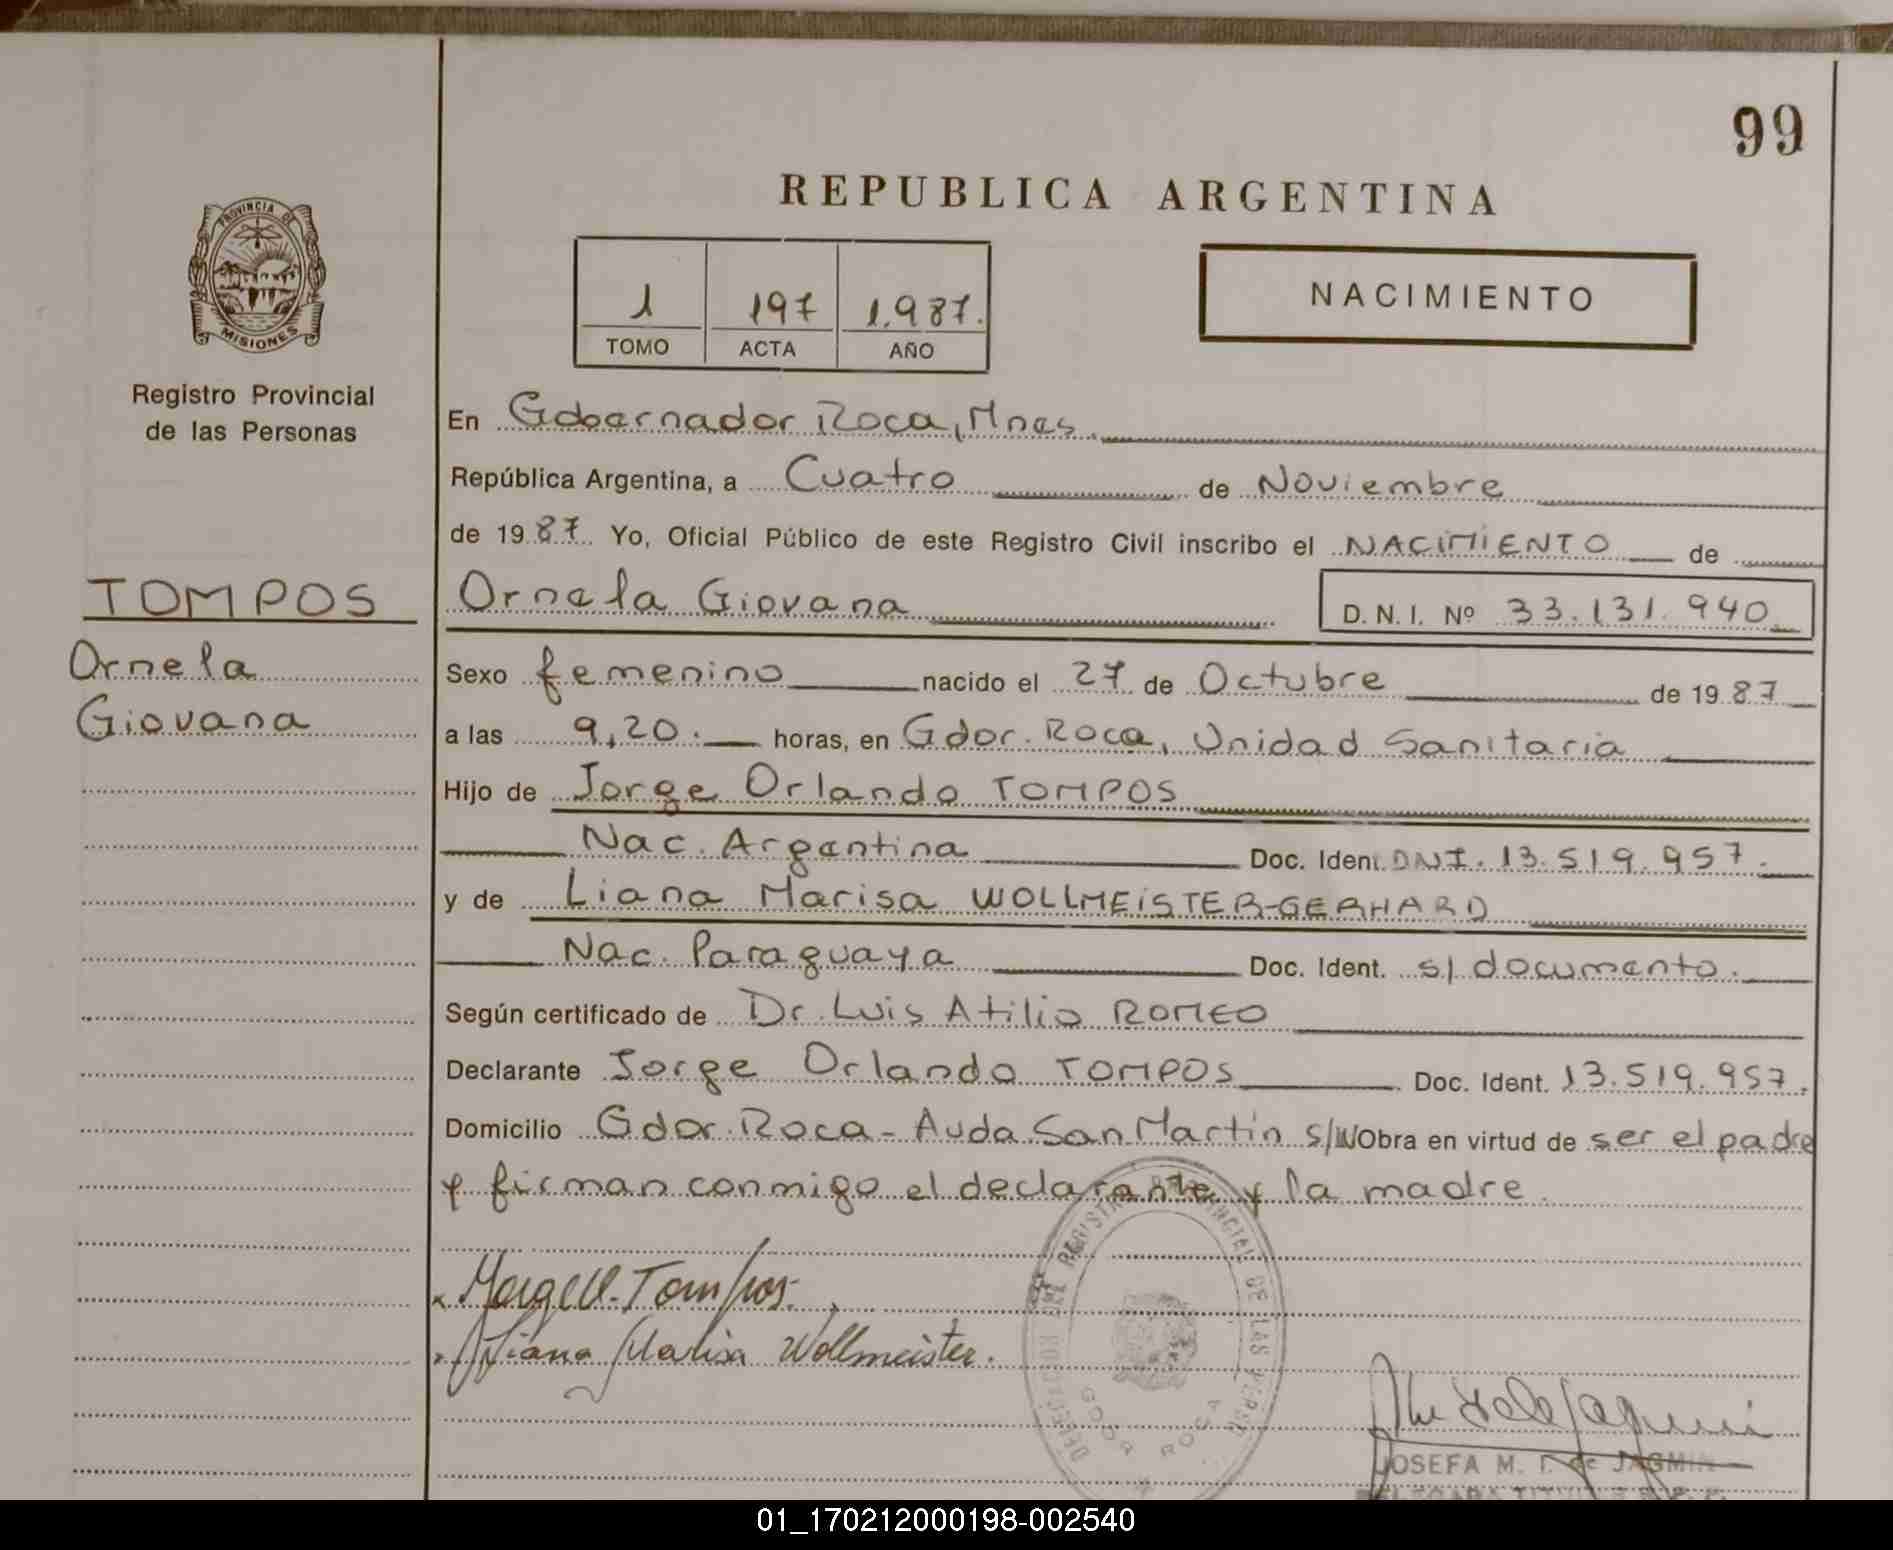 99
REPUBLICA ARGENTINA
PROVINCIA DE
MISIONES
1 197 1.987.
TOMO ACTA AÑO
NACIMIENTO
Registro Provincial
de las Personas
En Gobernador Roca, Mnes.
República Argentina, a Cuatro de Noviembre
de 1987 Yo, Oficial Público de este Registro Civil inscribo el NACIMIENTO de
TOMPOS
Ornela
Giovana
Ornela Giovana D. N. I. Nº 33.131.940
Sexo femenino nacido el 27 de Octubre de 1987
a las 9,20. horas, en Gdor. Roca, Unidad Sanitaria
Hijo de Jorge Orlando TOMPOS
Nac. Argentina Doc. Ident. DNI. 13.519.957.
y de Liana Marisa WOLLMEISTER-GERHARD
Nac. Paraguaya Doc. Ident. s/ documento.
Según certificado de Dr. Luis Atilio ROMEO
Declarante Jorge Orlando TOMPOS Doc. Ident. 13.519.957.
Domicilio Gdor. Roca - Avda San Martin s/N Obra en virtud de ser el padre
y firman conmigo el declarante y la madre.
Tompos.
Liana Marisa Wollmeister.
DELEGACION DEL REGISTRO PROVINCIAL DE LAS PERSO
GDOR ROCA
JOSEFA M. T. de JAGMIN
01_170212000198-002540